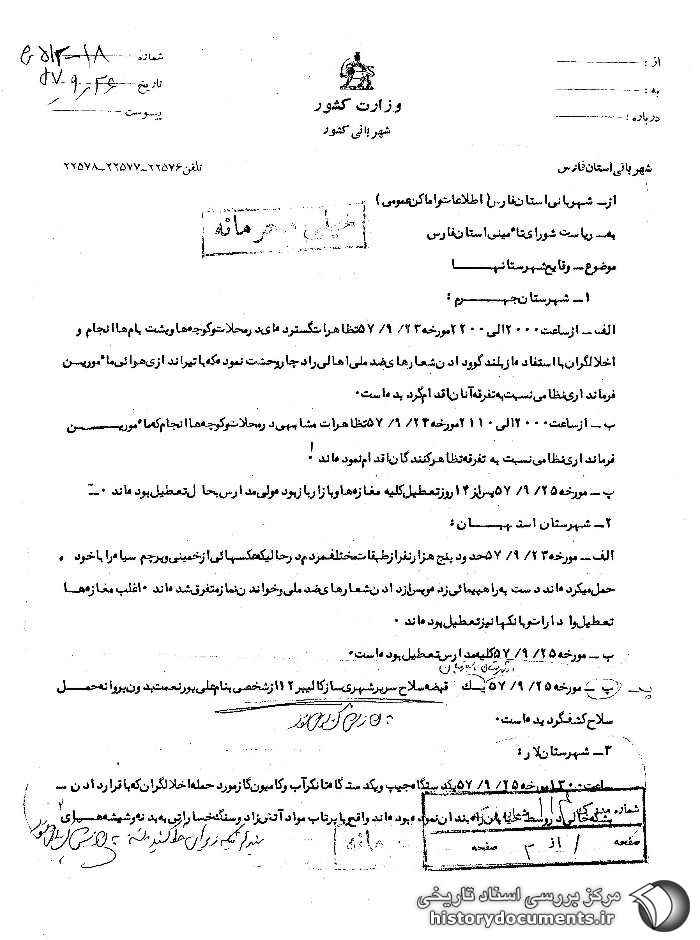 از :
به :
درباره :
وزارت کشور
شهربانی کشور
شماره ۱۸-۵۱۲
تاریخ ۲۶ر۹ر۵۷
پیوست
شهربانی استان فارس
تلفن ۲۲۵۷۶-۲۲۵۷۷-۲۲۵۷۸
از- شهربانی استان فارس (اطلاعات و اماکن عمومی)
خیلی محرمانه
به- ریاست شورای تأمینی استان فارس
موضوع- وقایع شهرستانها
۱- شهرستان جهرم :
الف- از ساعت ۲۰۰۰ الی ۲۲۰۰ مورخه ۲۳/ ۹/ ۵۷ تظاهرات گسترده‌ای در محلات و کوچه‌ها و پشت بام‌ها انجام و
اخلالگران با استفاده از بلندگو و دادن شعارهای ضد ملی اهالی را دچار وحشت نموده که با تیراندازی هوائی مأمورین
فرمانداری نظامی نسبت به تفرقه آنان اقدام گردیده است۰
ب- از ساعت ۲۰۰۰ الی ۲۱۱۰ مورخه ۲۴/ ۹/ ۵۷ تظاهرات مشابهی در محلات و کوچه‌ها انجام که مأمورین
فرمانداری نظامی نسبت به تفرقه تظاهرکنندگان اقدام نموده‌اند ۰
پ- مورخه ۲۵/ ۹/ ۵۷ پس از ۱۴ روز تعطیل کلیه مغازه‌ها و بازار باز بود ولی مدارس بحال تعطیل بوده‌اند ۰
۲- شهرستان استهبان :
الف- مورخه ۲۳/ ۹/ ۵۷ حدود پنج هزار نفر از طبقات مختلف مردم در حالیکه عکسهائی از خمینی و پرچم سیاه را با خود
حمل میکرده‌اند دست به راهپیمائی زده و پس از دادن شعارهای ضد ملی و خواندن نماز متفرق شده‌اند ۰ اغلب مغازه‌ها
تعطیل و ادارات و بانکها نیز تعطیل بوده‌اند ۰
ب- مورخه ۲۵/ ۹/ ۵۷ کلیه مدارس تعطیل بوده است۰
پ- مورخه ۲۵/ ۹/ ۵۷ یک قبضه سلاح سرپر شهری ساز کالیبر ۱۲ از شخصی بنام علی پورنعمت بدون پروانه حمل
سلاح کشف گردیده است۰
۳- شهرستان لار :
ساعت ۱۳۰۰ مورخه ۲۵/ ۹/ ۵۷ یکدستگاه جیپ و یکدستگاه تانکر آب و کامیون گاز مورد حمله اخلالگران که با قرار دادن
بشکه خالی در وسط خیابان راه بندان نموده بوده‌اند واقع با پرتاب مواد آتش‌زا و سنگ خساراتی به بدنه و شیشه‌های
شماره مدرک
صفحه ۱ از ۲ صفحه
مرکز بررسی اسناد تاریخی
historydocuments.ir